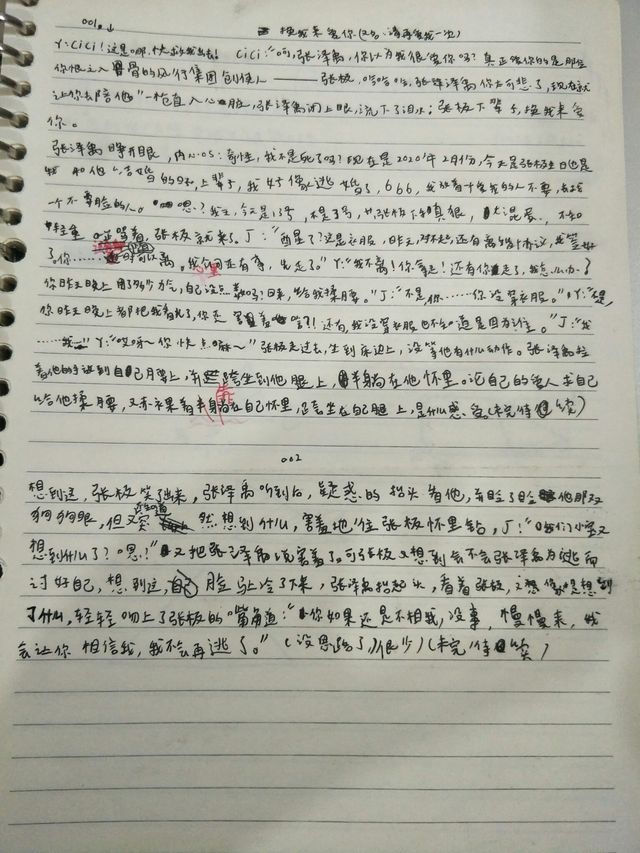 001.↓
换我来爱你(又名:请再爱我一次)
Y:CiCi!这是哪,快放我出去! CiCi:“呵,张泽禹,你以为我很爱你吗?真正爱你的是那位
你恨之入骨的风行集团创使人——张极,哈哈哈,张泽禹你太可悲了,现在就
让你去陪他”一枪直入心脏,张泽禹闭上眼,流下了泪水:张极下辈子,换我来爱
你。
张泽禹睁开眼,内心OS:奇怪,我不是死了吗?现在是2020年2月份,今天是张极生日也是
和他结婚的,上辈子,我好像逃婚了,666,我放着十爱我的人不要,去
一个不要脸的人。嗯?我,今天是13号,不是3号,张极下真狠,大混屋,不知
轻重。想着,张极就来了。J:“酉星了?这是衣服,昨天,对不起,还有离婚协议,我签好
了你……离。我公司还有事,先走了。”Y:“我不离!你走!还有你走了,我怎么办?
你昨天晚上用了多少力气,自己没点数吗?回来,给我揉腰。”J:“不是你……你没穿衣服。”Y:“是,
你昨天晚上都把我看光了,你还害羞啥?!还有,我没穿衣服也不知道是因为谁。”J:“我
……我”Y:“哎呀~你快点嘛~”张极走过去,坐到床边上,没等他有什么动作。张泽禹拉
着他的手放到自己月要上,跨坐到他腿上,半躺在他怀里。论自己的爱人求自己
给他揉腰,又亦果着半身躺在自己怀里,跨坐在自己腿上,是什么感爱。(未完待续)
002
想到这,张极笑了出来,张泽禹听到后,疑惑的抬头看他,眨了眨他那双
狗狗眼,但又突然想到什么,害羞地往张极怀里钻,J:“我们小宝又
想到什么了?嗯?”又把张泽禹说害羞了。可张极又想到会不会张泽禹为逃而
讨好自己,想到这,脸马上冷了下来,张泽禹抬起头,看着张极,想到
了什么,轻轻吻上了张极的嘴角道:“你如果还是不相我,没事,慢慢来,我
会让你相信我,我不会再逃了。”(没思路了,很少)(未完待续)